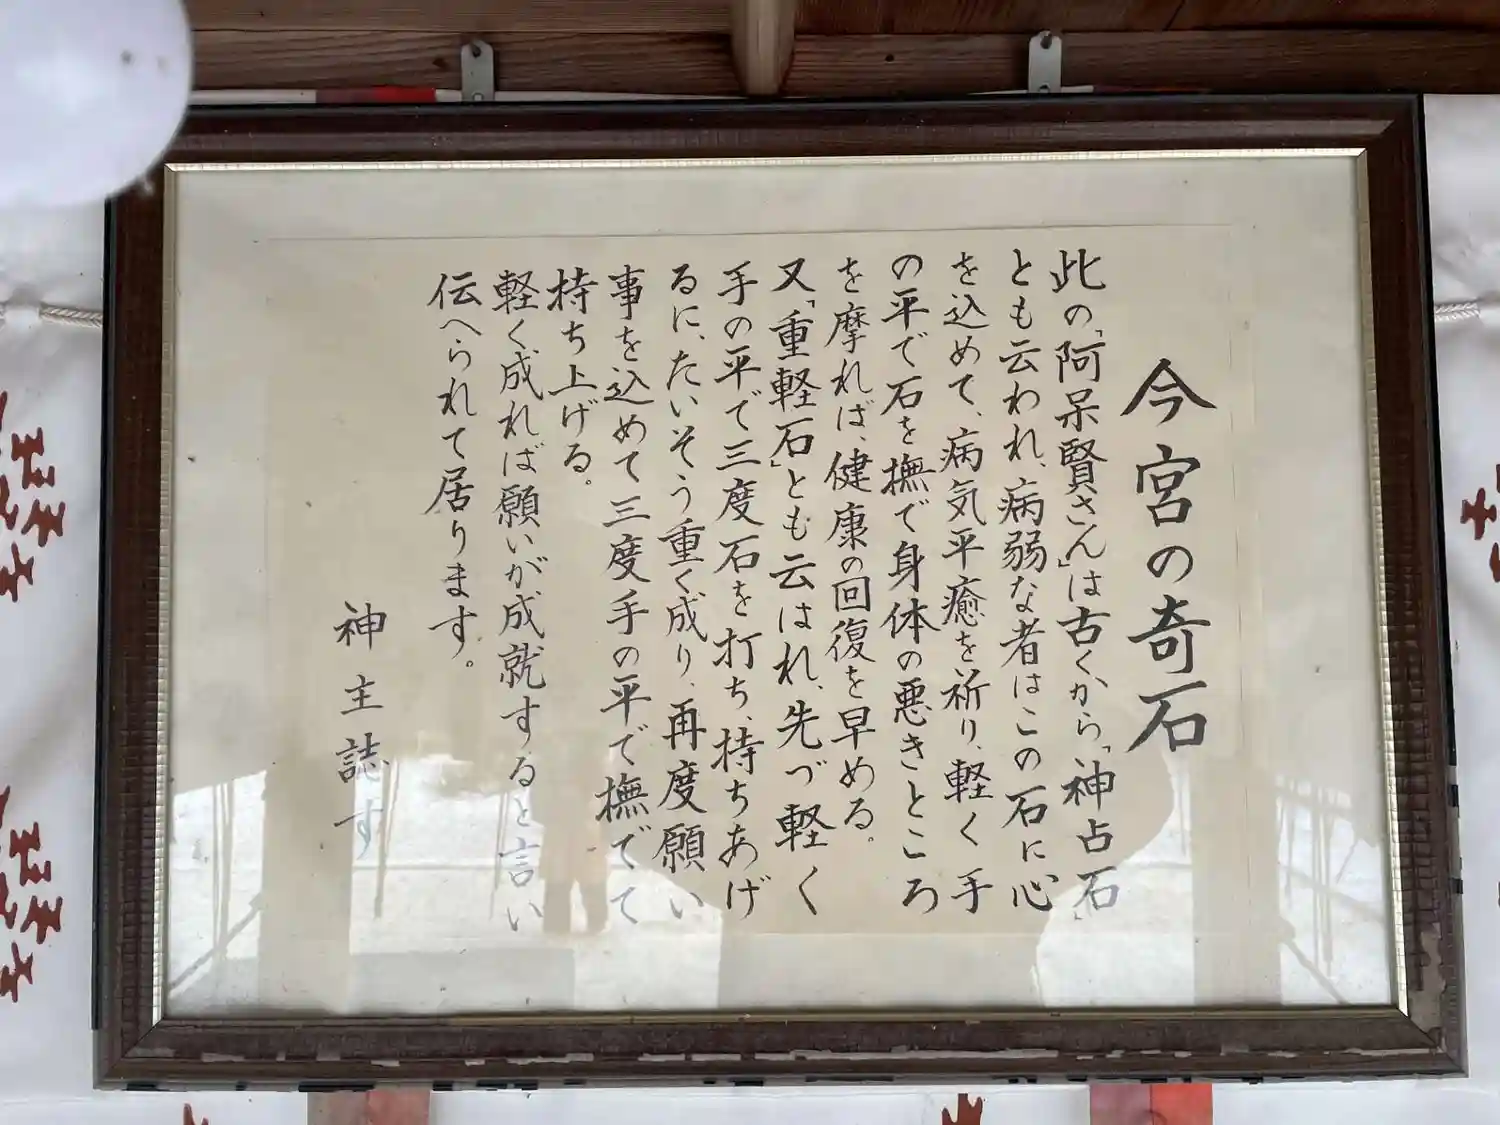 今宮の奇石
此の「阿呆賢さん」は古くから「神占石」
とも云われ、病弱な者はこの石に心
を込めて、病気平癒を祈り、軽く手
の平で石を撫で身体の悪きところ
を摩れば、健康の回復を早める。
又「重軽石」とも云はれ、先づ軽く
手の平で三度石を打ち、持ちあげ
るに、たいそう重く成り、再度願い
事を込めて三度手の平で撫でて
持ち上げる。
軽く成れば願いが成就すると言い
伝へられて居ります。
神主誌す